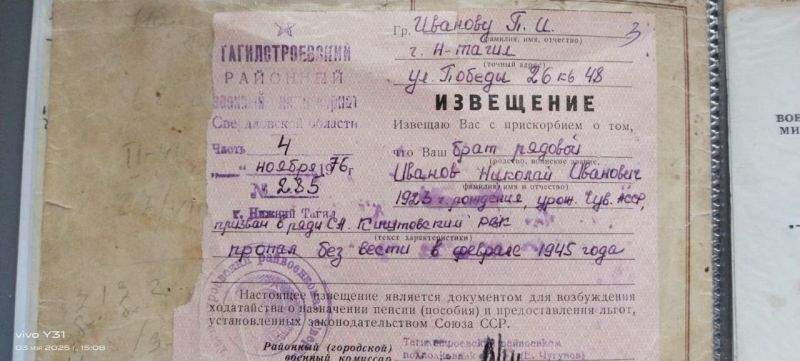 Гр. Иванову П. И.
(фамилия, имя, отчество)
3
г. Н-Тагил
(точный адрес)
ул. Победы 26 кв 48
ТАГИЛСТРОЕВСКИЙ
РАЙОННЫЙ
Свердловской области
Часть 4
„ “ ноября 1976 г
№ 235
г. Нижний Тагил
ИЗВЕЩЕНИЕ
Извещаю Вас с прискорбием о том,
что Ваш брат рядовой
(родство, воинское звание,
Иванов Николай Иванович
фамилия, имя и отчество)
1923 г. рождения, урож. Чув. АССР,
призван в ряды СА РВК
(текст характеристики)
пропал без вести в феврале 1945 года
Настоящее извещение является документом для возбуждения
ходатайства о назначении пенсии (пособия) и предоставления льгот,
установленных законодательством Союза ССР.
Районный (городской)
военный комиссар
ВОЕ
МИ
vivo Y31
03 мая 2025 г., 15:08